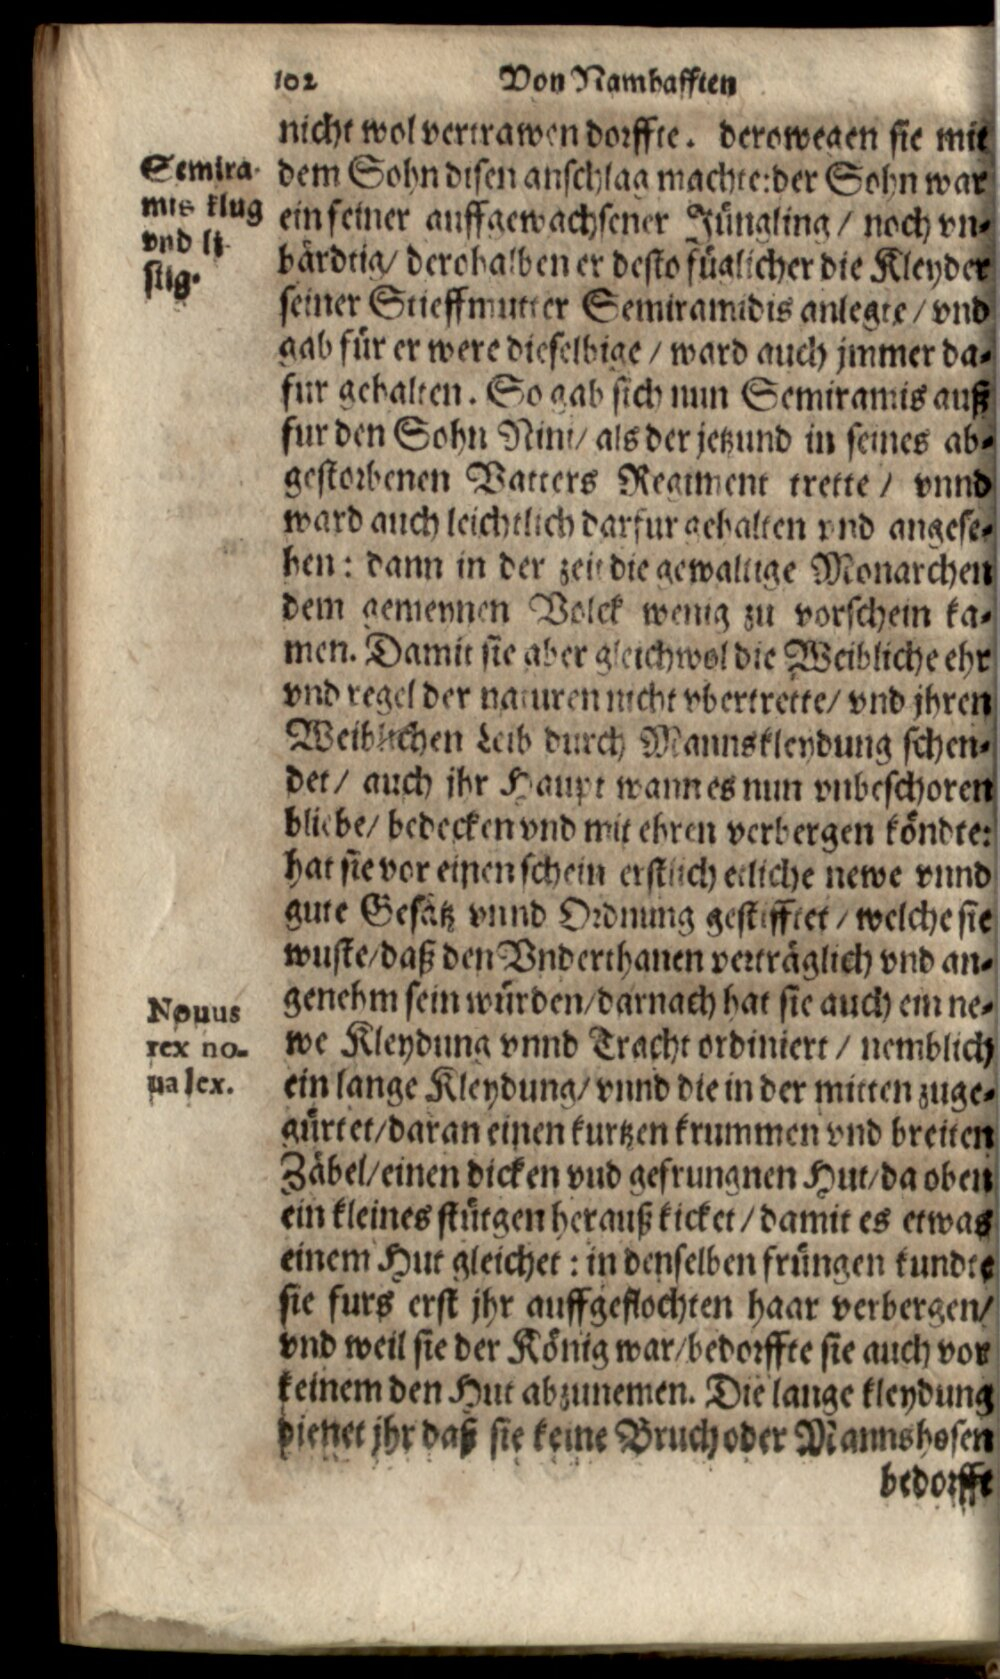 102 Von Namhafften
nicht wol vertrawen dorffte. derowegen sie mit
dem Sohn disen anschlag machte: der Sohn war
ein feiner auffgewachsener Jüngling / noch vn-
bärdtig / derohalben er desto füglicher die Kleyder
seiner Stieffmutter Semiramidis anlegte / vnd
gab für er were dieselbige / ward auch jmmer da-
fur gehalten. So gab sich nun Semiramis auß
fur den Sohn Nini / als der jetzund in seines ab-
gestorbenen Vatters Regiment trette / vnnd
ward auch leichtlich darfur gehalten vnd angese-
hen: dann in der zeit die gewaltige Monarchen
dem gemeynen Volck wenig zu vorschein ka-
men. Damit sie aber gleichwol die Weibliche ehr
vnd regel der naturen nicht vbertrette / vnd jhren
Weiblichen Leib durch Mannskleydung schen-
det / auch jhr Haupt wann es nun vnbeschoren
bliebe / bedecken vnd mit ehren verbergen köndte:
hat sie vor einen schein erstlich etliche newe vnnd
gute Gesätz vnnd Ordnung gestifftet / welche sie
wuste / daß den Vnderthanen verträglich vnd an-
genehm sein würden / darnach hat sie auch ein ne-
we Kleydung vnnd Tracht ordiniert / nemblich
ein lange Kleydung / vnnd die in der mitten zuge-
gürtet / daran einen kurtzen krummen vnd breiten
Zäbel / einen dicken vnd gefrungnen Hut / da oben
ein kleines stützgen herauß kicket / damit es etwas
einem Hut gleichet: in denselben früngen kundte
sie furs erst jhr auffgeflochten haar verbergen /
vnd weil sie der König war / bedorffte sie auch vor
keinem den Hut abzunemen. Die lange kleydung
dienet jhr daß sie keine Bruch oder Mannshosen
bedorfft
Semira-
mis klug
vnd li-
stig.
Nouus
rex no-
ua lex.